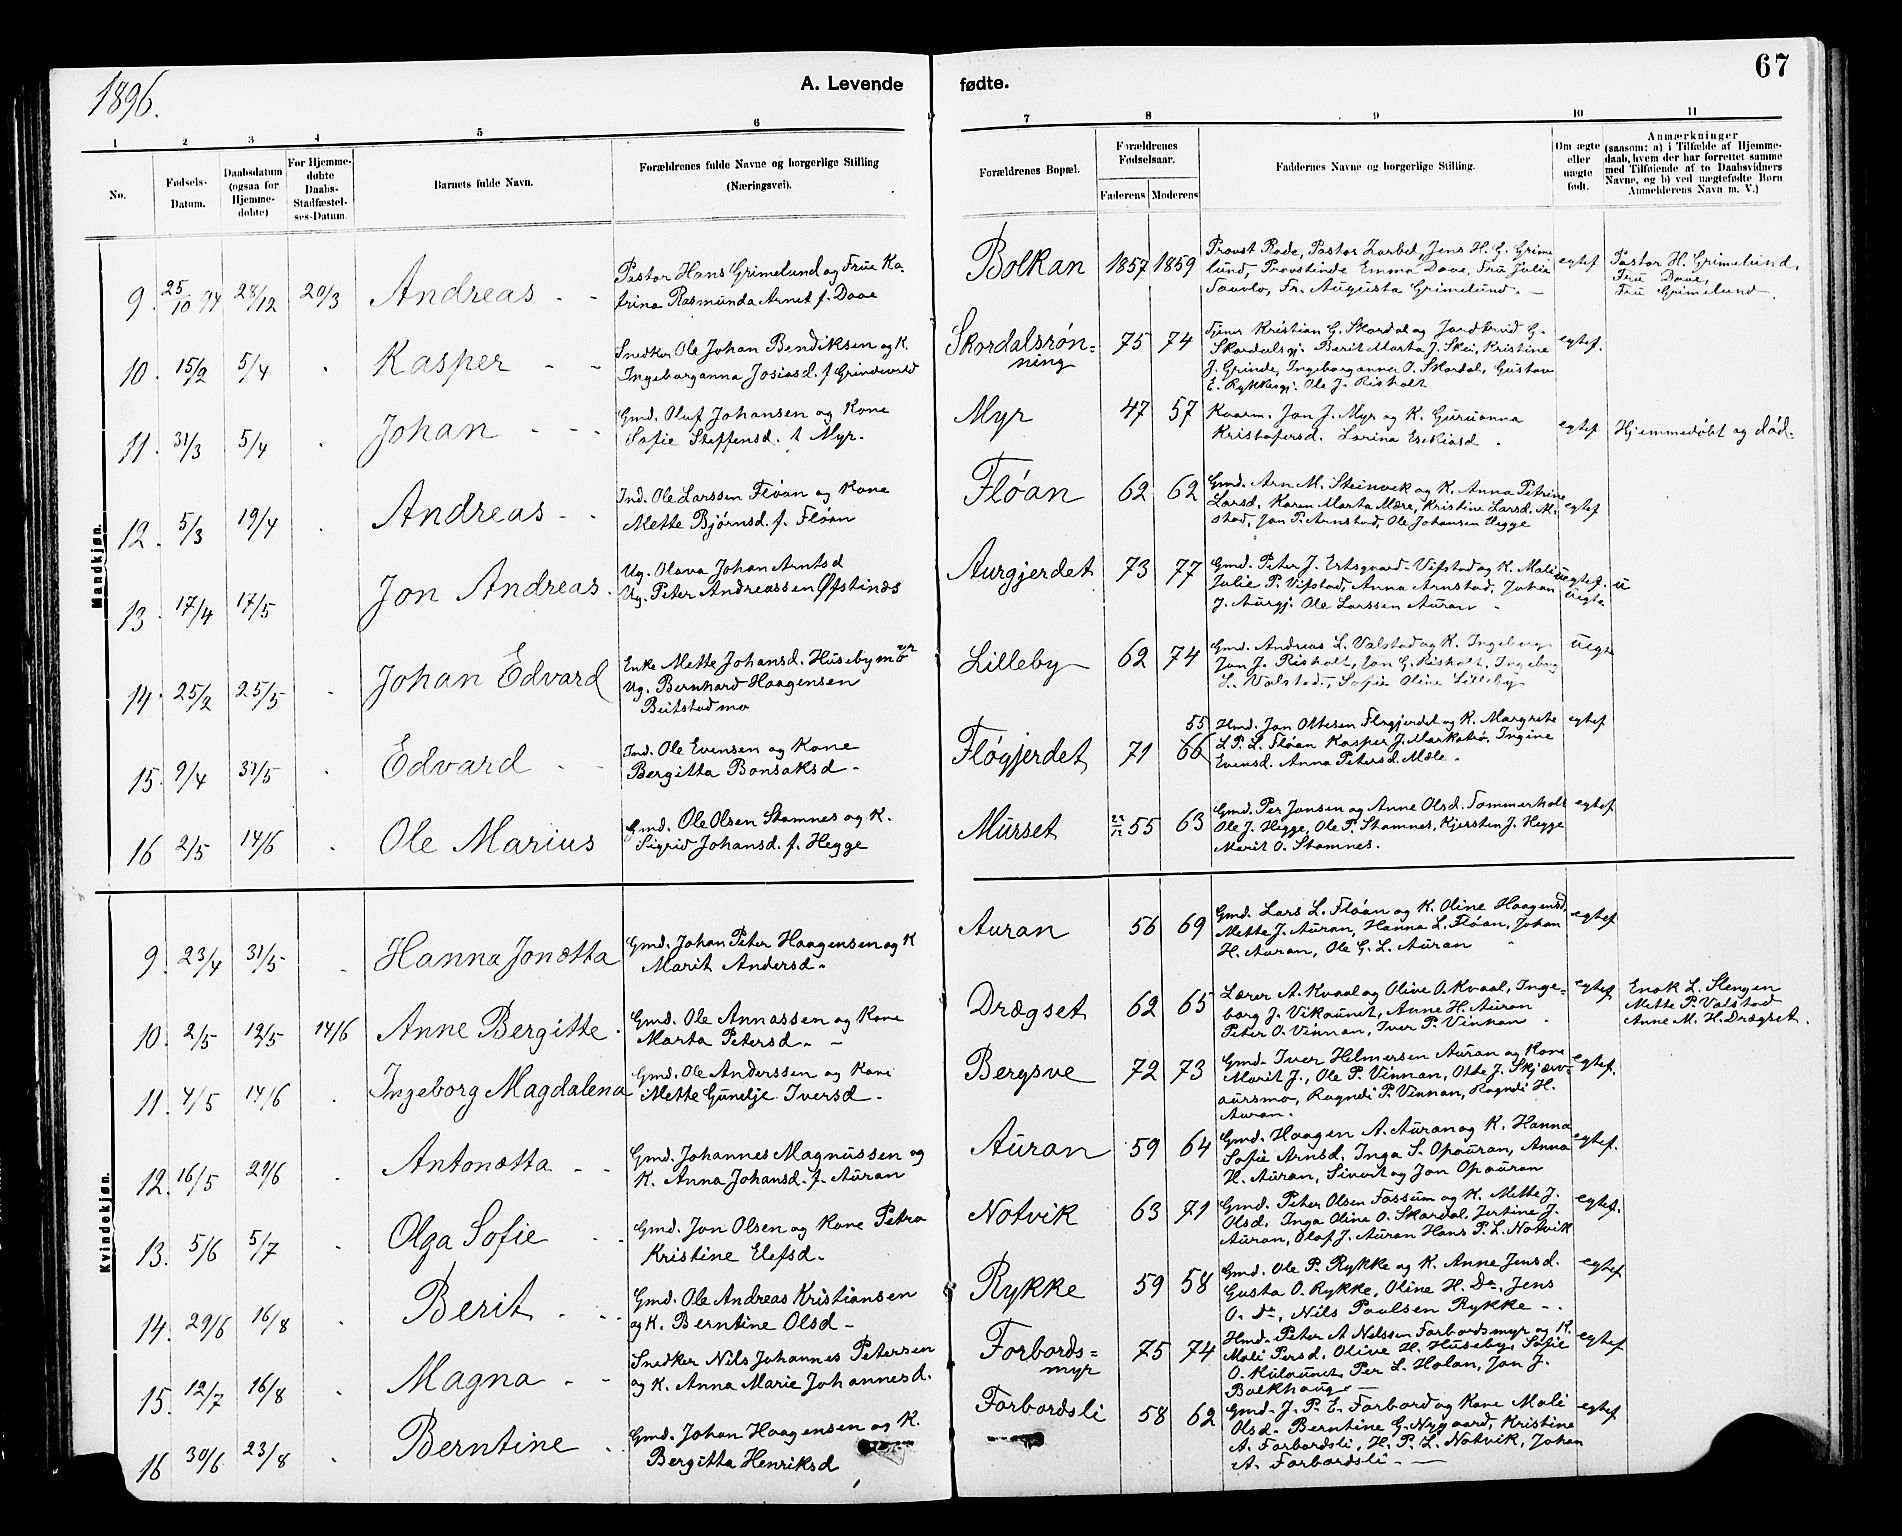 1896.
A. Levende fødte.
67
1 2 3 4 5 6 7 8 9 10 11
No.
Fødsels-Datum.
Daabsdatum (ogsaa for Hjemme-døbte)
For Hjemme-døbte Daabs-Stadfæstel-ses-Datum
Barnets fulde Navn.
Forældrenes fulde Navne og borgerlige Stilling (Næringsvei).
Forældrenes Bopæl.
Forældrenes Fødselsaar.
Faderens Moderens
Faddernes Navne og borgerlige Stilling.
Om ægte eller uægte født.
Anmærkninger (saasom: a) i Tilfælde af Hjemme-daab, hvem der har forrettet samme med Tilføiende af to Daabsvidners Navne, og b) ved uægtefødte Børn Anmelderens Navn m. V.)
Mandkjøn.
9. 25/10 94 28/12 20/3 Andreas - -
Pastor Hans Grimelund og Frue Ka-
trina Rasmunda Arnet f. Daae
Bolkan 1857 1859
Provst Rode, Pastor Jens H. G. Grime
lund, Provstinde Emma Daae, Fru Julie
Fr. Augusta Grimelund. -
egtef
Pastor H. Grimelund.
Fru Daae,
Fru Grimelund.
10. 15/2 5/4 . Kasper - -
Snedker Ole Johan Bendiksen og K.
Ingeborganna Josiasd. f Grindevold
Skordalsrøn=
ning 75 74
Tjener Kristian G. Skordal og G.
Skordalsgj. Berit Marta J. Skei, Kristine
J. Grinde, Ingeborganna O. Skordal, Gustav
E. Rykkesgj. Ole J. Risholt
egtef.
11. 31/3 5/4 . Johan - - -
Gmd. Oluf Johansen og Kone
Sofie Steffensd. f Myr.
Myr 47 57
Kaarm. Jon J. Myr og K. Guruanna
Kristofersd. Larina Esekiasd .
egtef
Hjemmedøbt og død.
12. 5/3 19/4 . Andreas - -
Ind. Ole Larssen Fløan og Kone
Mette Bjørnsd. f. Fløan
Fløan 62 62
Gmd. Arn M. Steinvek og K. Anna Petrine
Larsd. Karen Marta Mære, Kristine Larsd. M.
stad, Jon P. Arnstad, Ole Johansen Hegge
egtef
13. 17/4 17/5 Jon Andreas.
Ug. Olava Johan Arntsd
Ug. Peter Andreassen Øfstinæs
Aurgjerdet 73 77
Gmd. Peter J. Ertsgaard. Vifstad og K. Mali
Julie P. Vifstad, Anna Arnstad, Johan
J. Aurgj. Ole Larssen Auran .
uegtef. u
uegte
14. 25/2 25/5 . Johan Edvard
Enke Mette Johansd. Husebymoer
Ug. Bernhard Haagensen
Beitstadmo
Lilleby 62 74
Gmd. Andreas L. Valstad og K. Ingeborg
Jon J. Risholt, Jon G. Risholt, Ingeborg
L. Valstad., Sofie Oline Lilleby
uegte
15. 9/4 31/5 . Edvard - -
Ind. Ole Evensen og Kone
Bergitta Bonsaksd -
Fløgjerdet 71 66 55
Hmd. Jon Ottesen Fløgjerdet og K. Margrete
L. P. L. Fløan Kasper J. Markabø, Ingine
Evensd. Anna Petersd. Mæle.
egtef
16 2/5 14/6 . Ole Marius
Gmd. Ole Olsen Stamnes og K.
Sigrid Johansd. f. Hegge
Murset 22/12 55 63
Gmd. Per Jonsen og Anne Olsd. Tommerholt
Ole J. Hegge, Ole P. Stamnes, Kjersten J. Hegge
Marit O. Stamnes.
egtef
Kvindekjøn.
9. 23/4 31/5 . Hanna Jonetta
Gmd. Johan Peter Haagensen og K
Marit Andersd -
Auran 56 69
Gmd. Lars L. Fløan og K. Oline Haagensd,
Mette J. Auran, Hanna L. Fløan, Johan
H. Auran, Ole G. L. Auran
egtef
10. 2/5 12/5 14/6 Anne Bergitte.
Gmd. Ole Annassen og Kone
Marta Petersd - -
Drægset 62 65
Lærer A. Kvaal og Olive O. Kvaal, Inge-
borg J. Vikaunet, Anne H. Auran
Peter O. Vinnan, Iver P. Vinnan .
egtef
Enok L. Slengen
Mette P. Valstad
Anne M. H. Drægset.
11. 4/5 14/6 . Ingeborg Magdalena
Gmd. Ole Anderssen og Kone
Mette Gundje Iversd -
Bergsve 72 73
Gmd. Iver Helmersen Auran og Kone
Marit J., Ole P. Vinnan, Otte J. Skjærv-
aursmo, Ragndi P. Vinnan, Ragndi H.
Auran.
egtef.
12. 16/5 29/6 . Antonetta - -
Gmd. Johannes Magnussen og
K. Anna Johansd. f. Auran
Auran 59 64
Gmd. Haagen A. Auran og K. Hanna
Sofie Arnsd. Inga S. Opauran, Anna
H. Auran, Sivert og Jon Opauran
egtef.
13. 5/6 5/7 . Olga Sofie - -
Gmd. Jon Olsen og Kone Petra
Kristine Elefsd.
Notvik 63 71
Gmd. Peter Olsen Fossum og K. Mette J.
Olsd. Inga Oline O. Skordal, Jertine J.
Auran, Olaf J. Auran Hans P. L. Notvik
egtef.
14. 29/6 16/8 . Berit - -
Gmd. Ole Andreas Kristiansen
og K. Berntine Olsd -
Rykke 59 58
Gmd. Ole P. Rykke og K. Anne Jensd.
Gusta O. Rykke, Oline H. Do, Jens
O. do, Nils Paulsen Rykke - .
egtef
15. 12/7 16/8 . Magna - -
Snedker Nils Johannes Petersen
og K. Anna Marie Johannesd.
Forbords=
myr 75 74
Hmd. Peter A Nelssen Forbordsmyr og K.
Mali Persd. Olive H. Huseby, Sofie
O. Kulaunet, Per L. Holan, Jon J.
Balkhaug -
egtef
16 30/6 23/8 . Berntine -
Gmd. Johan Haagensen og K.
Bergitta Henriksd
Forbordsli 58 62
Gmd. J. P. E. Forbord og Kone Mali
Olsd. Berntine G. Nygaard, Kristine
A. Forbordsli, H. P. L. Notvik, Johan
A. Forbordsli - -
egtef